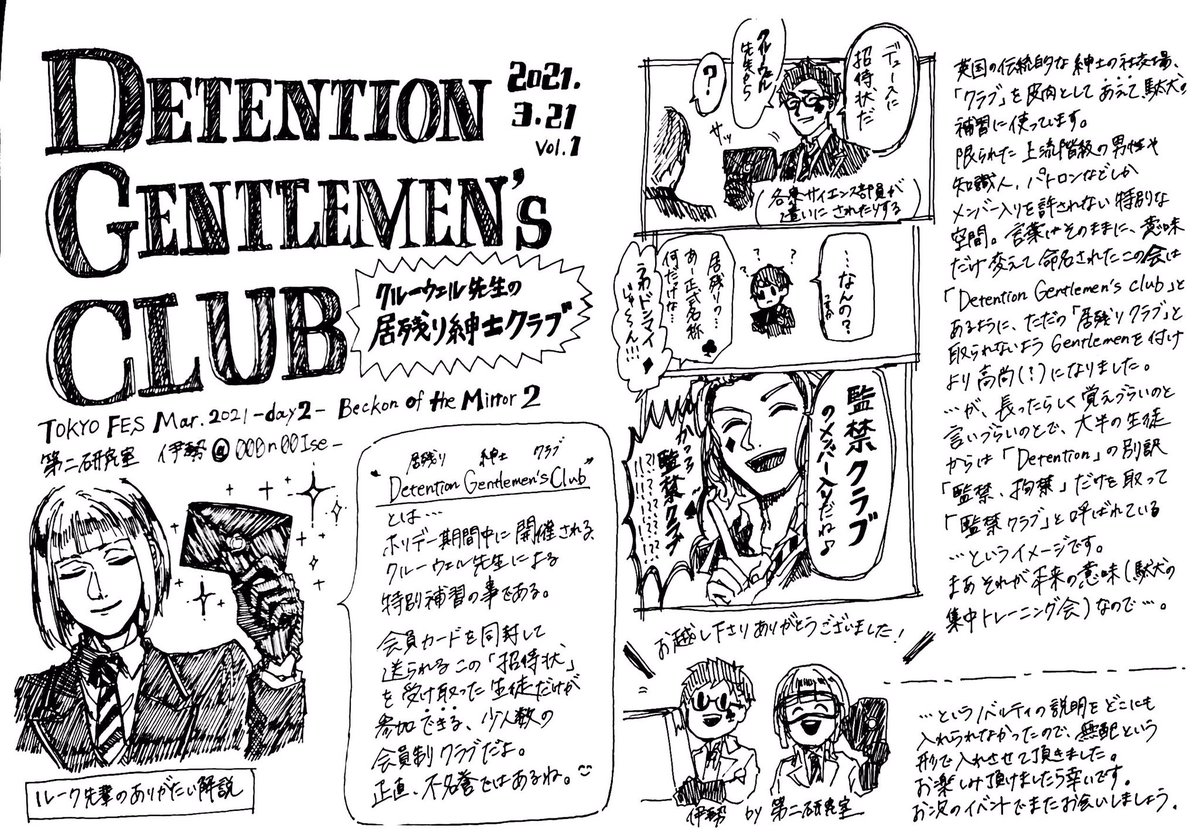 DETENTION
GENTLEMEN's
CLUB
2021.
3.21
Vol.1
クルーウェル先生の
居残り紳士クラブ
TOKYO FES Mar.2021 -day2- Beckon of the Mirror 2
第二研究室 伊勢 @000n00Ise-
居残り 紳士 クラブ
"Detention Gentlemen's Club"
とは…
ホリデー期間中に開催される、
クルーウェル先生による
特別補習の事である。
会員カードを同封して
送られるこの「招待状」
を受け取った生徒だけが
参加できる、少人数の
会員制クラブだよ。
正直、不名誉ではあるね。
ルーク先輩のありがたい解説
デュースに
招待状だ
クルーウェル
先生から
?
サッ
(各寮サイエンス部員が
遣いにされたりする)
…なんの?
ですか
? ? ? ?
居残りの…
あー正式名称
何だっけな… ♣
うわドンマイ
じゃ〜ん!!! ♦
監禁クラブ
のメンバー入りだね♪
かっっ
監禁クラブ
!?!?!?
お越し下さりありがとうございました!
伊勢 by 第二研究室
英国の伝統的な紳士の社交場、
「クラブ」を皮肉としてあえて駄犬の
補習に使っています。
限られた上流階級の男性や
知識人、パトロンなどしか
メンバー入りを許されない特別な
空間。言葉はそのままに、意味
だけ変えて命名されたこの会は
「Detention Gentlemen's club」と
あるように、ただの「居残りクラブ」と
取られないようGentlemenを付け
より高尚(?)になりました。
…が、長ったらしく覚えづらいのと
言いづらいのとで、大半の生徒
からは「Detention」の別訳
「監禁、拘禁」だけを取って
「監禁クラブ」と呼ばれている
…というイメージです。
まあそれが本来の意味(駄犬の
集中トレーニング会)なので…。
…というノベルティの説明をどこにも
入れられなかったので、無配という
形で入れさせて頂きました。
お楽しみ頂けましたら幸いです。
お次のイベントでまたお会いしましょう。